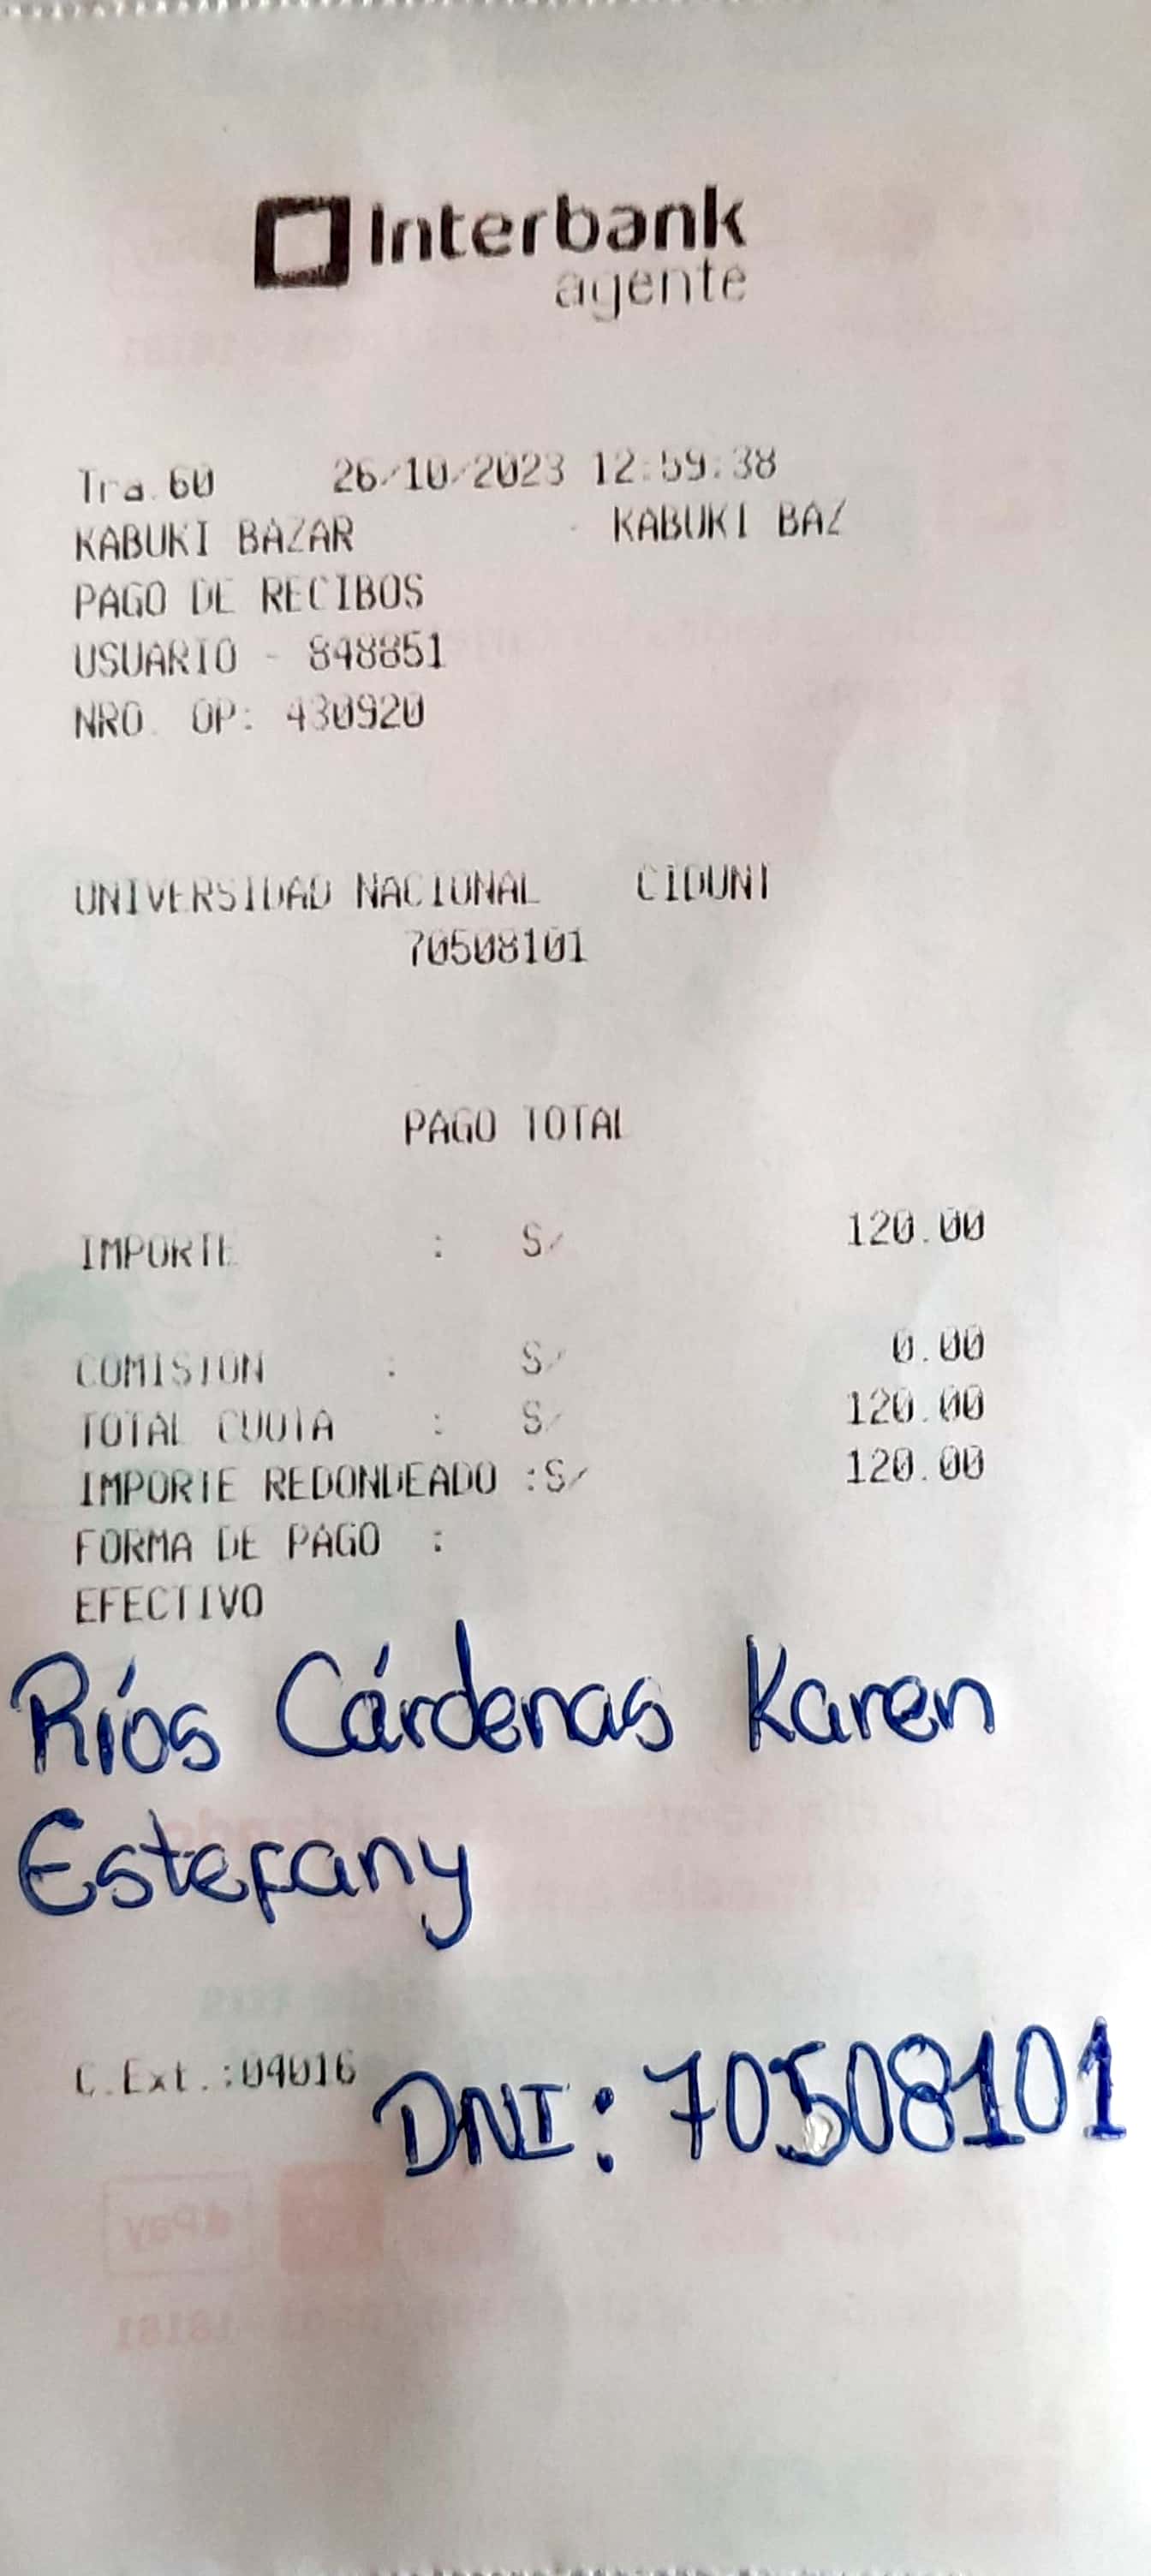 Interbank
agente
Tra.60 26/10/2023 12:59:38
KABUKI BAZAR KABUKI BAZ
PAGO DE RECIBOS
USUARIO - 848851
NRO. OP: 430920
UNIVERSIDAD NACIONAL CIDUNT
70508101
PAGO TOTAL
IMPORTE : S/ 120.00
COMISION : S/ 0.00
TOTAL CUOTA : S/ 120.00
IMPORTE REDONDEADO :S/ 120.00
FORMA DE PAGO :
EFECTIVO
Ríos Cárdenas Karen
Estefany
C.Ext.:04016 DNI: 70508101